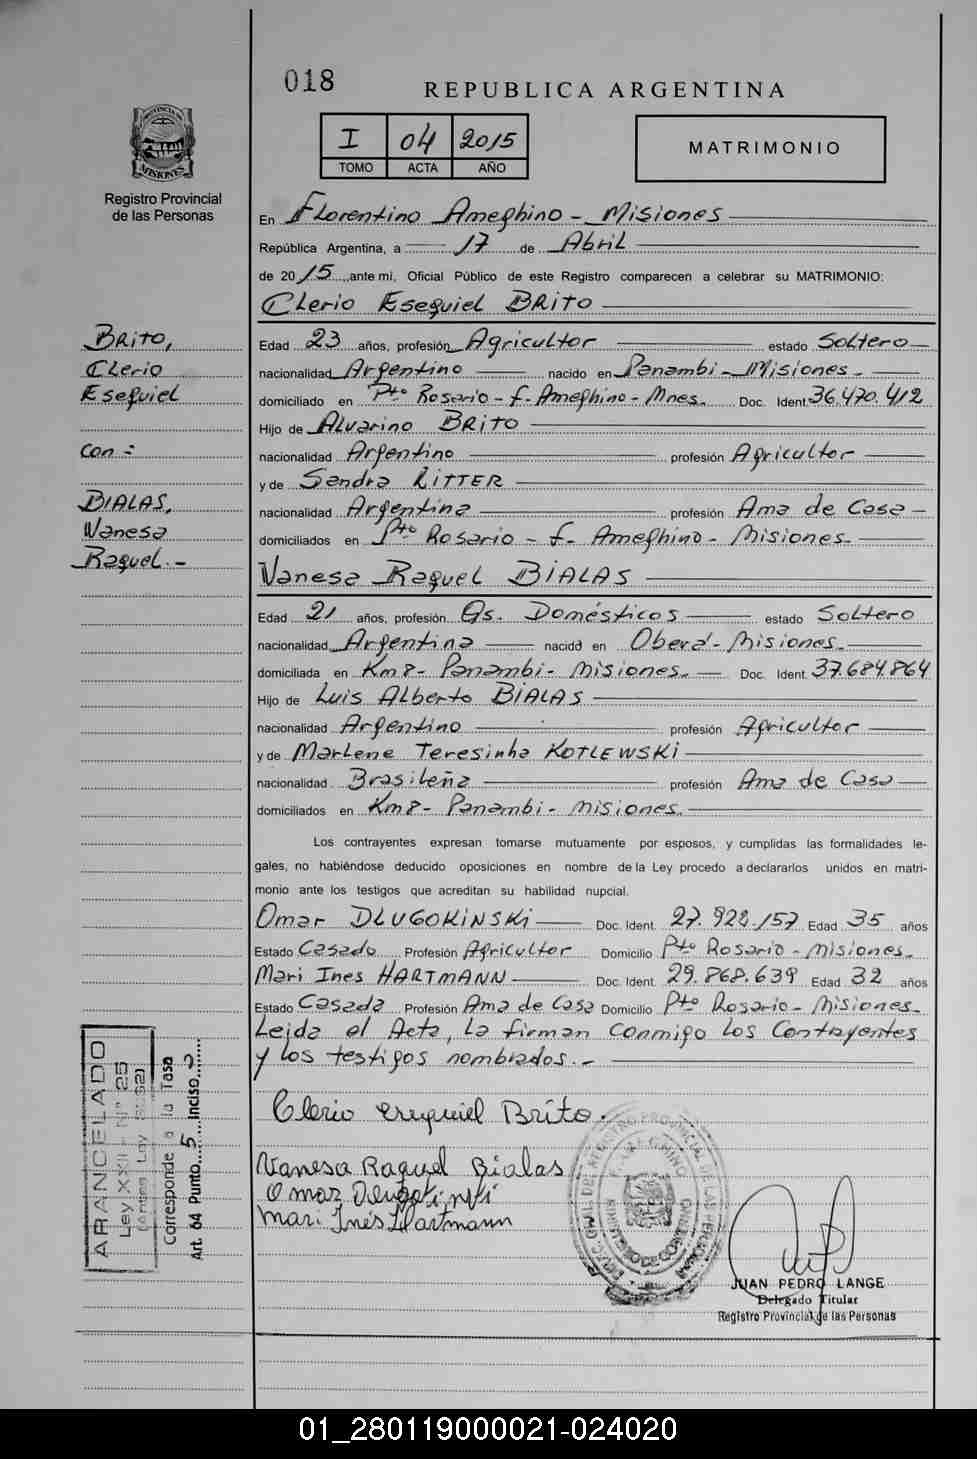 018
REPUBLICA ARGENTINA
PROVINCIA DE MISIONES
Registro Provincial
de las Personas
I 04 2015
TOMO ACTA AÑO
MATRIMONIO
En Florentino Ameghino - Misiones
República Argentina, a 17 de Abril
de 2015, ante mi, Oficial Público de este Registro comparecen a celebrar su MATRIMONIO:
Clerio Esequiel BRITO
BRITO,
Clerio
Esequiel
Con -
BIALAS,
Vanesa
Raquel.-
Edad 23 años, profesión Agricultor estado Soltero
nacionalidad Argentino nacido en Panambi - Misiones.
domiciliado en Pto Rosario - F. Ameghino - Mnes. Doc. Ident. 36.470.412
Hijo de Alvarino BRITO
nacionalidad Argentino profesión Agricultor
y de Sandra RITTER
nacionalidad Argentina profesión Ama de Casa
domiciliados en Pto Rosario - F. Ameghino - Misiones.
Vanesa Raquel BIALAS
Edad 21 años, profesión Qs. Domésticos estado Soltero
nacionalidad Argentina nacida en Oberá - Misiones.
domiciliada en Km 8 - Panambi - Misiones. Doc. Ident. 37.684.864
Hijo de Luis Alberto BIALAS
nacionalidad Argentino profesión Agricultor
y de Marlene Teresinha KOTLEWSKI
nacionalidad Brasileña profesión Ama de Casa
domiciliados en Km 8 - Panambi - Misiones.
Los contrayentes expresan tomarse mutuamente por esposos, y cumplidas las formalidades le-
gales, no habiéndose deducido oposiciones en nombre de la Ley procedo a declararlos unidos en matri-
monio ante los testigos que acreditan su habilidad nupcial.
Omar DLUGOKINSKI Doc. Ident. 27.922.157 Edad 35 años
Estado Casado Profesión Agricultor Domicilio Pto Rosario - Misiones.
Mari Ines HARTMANN Doc. Ident. 29.868.639 Edad 32 años
Estado Casada Profesión Ama de Casa Domicilio Pto Rosario - Misiones.
Leida el Acta, la firman conmigo los Contrayentes
y los testigos nombrados.-
ARANCELADO
Ley XXII - Nº 25
Corresponde a la Tasa
Art. 64 Punto 5 Inciso
Clerio Esequiel Brito.
Vanesa Raquel Bialas
Omar
Mari Inés Hartmann
JUAN PEDRO LANGE
Delegado Titular
Registro Provincial de las Personas
01_280119000021-024020